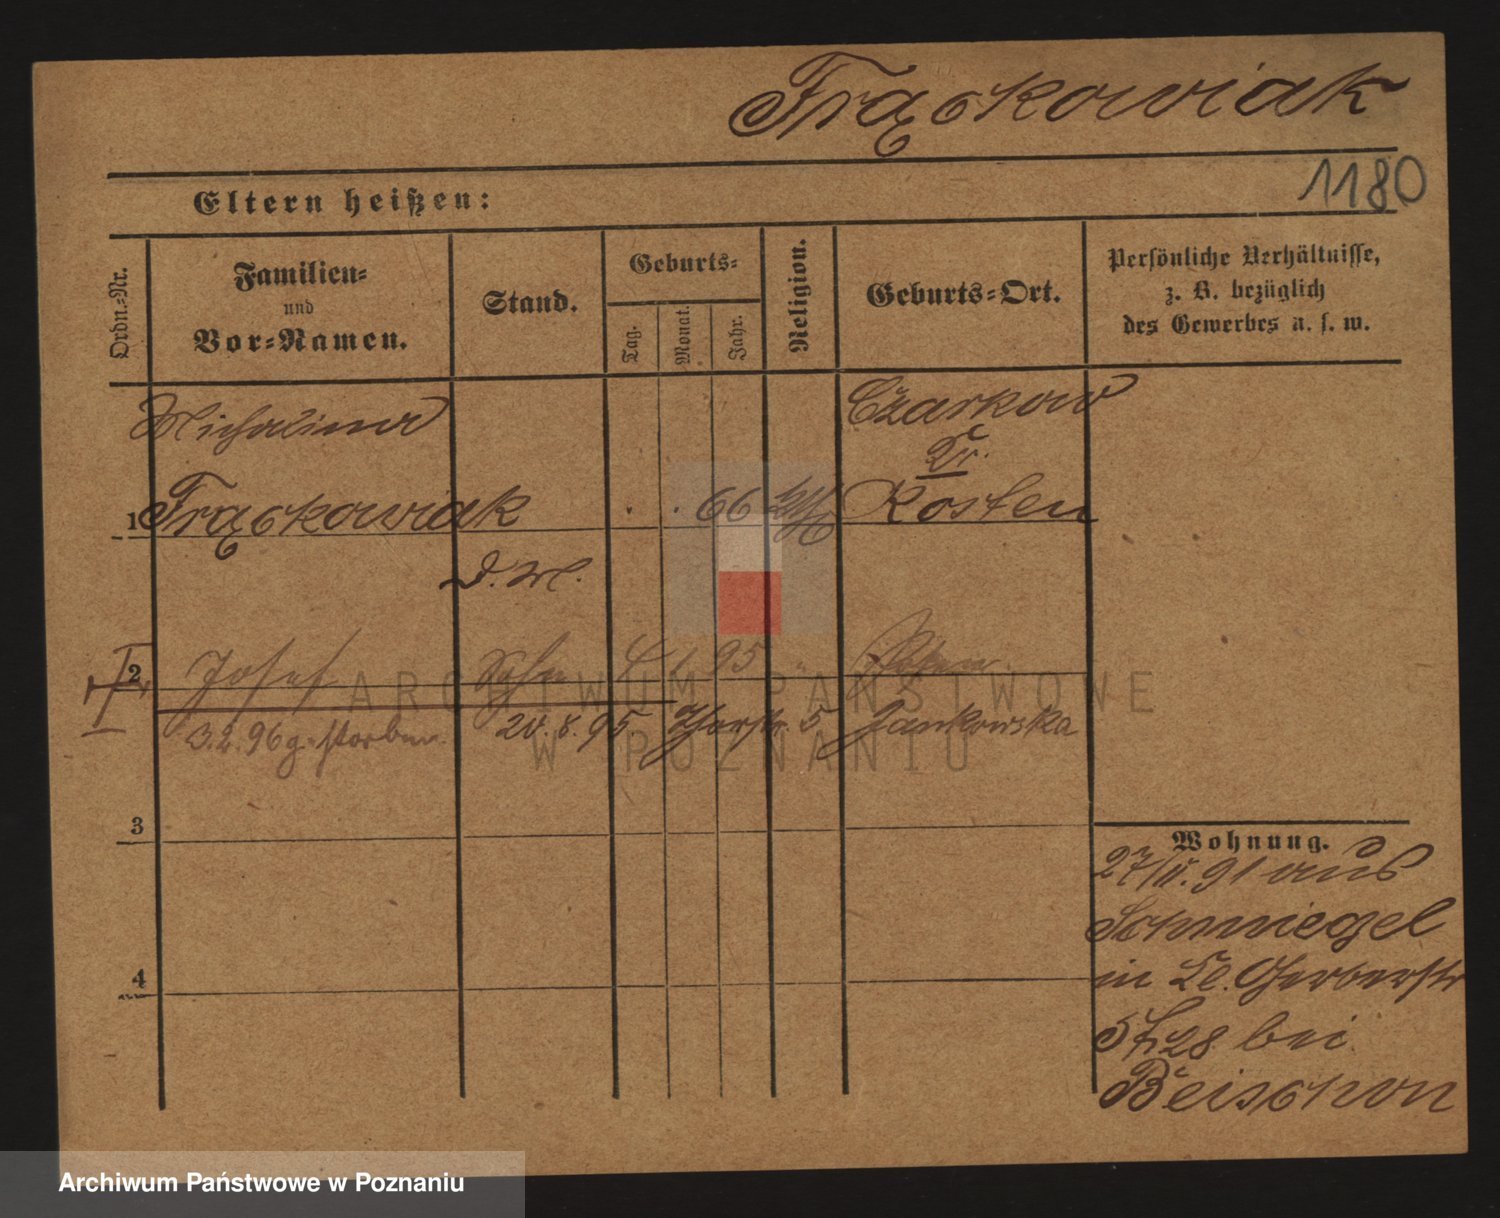 Frąckowiak
1180
Eltern heißen:
Ordn.-Nr.
Familien-
und
Vor-Namen.
Stand.
Geburts-
Tag.
Monat.
Jahr.
Religion.
Geburts-Ort.
Persönliche Verhältnisse,
z. B. bezüglich
des Gewerbes u. s. w.
Michalina
Czarkow
Kr.
1 Frąckowiak . . 66 Kosten
D. M.
2 Josef Sohn 95 Posen
3.2.96 gestorben 20.8.95 5 Jankowska
3
4
Wohnung.
27/II. 91 aus
Schmiegel
in Kl. Gerberstr
5 bei
Beischon
ARCHIWUM PAŃSTWOWE
W POZNANIU
Archiwum Państwowe w Poznaniu